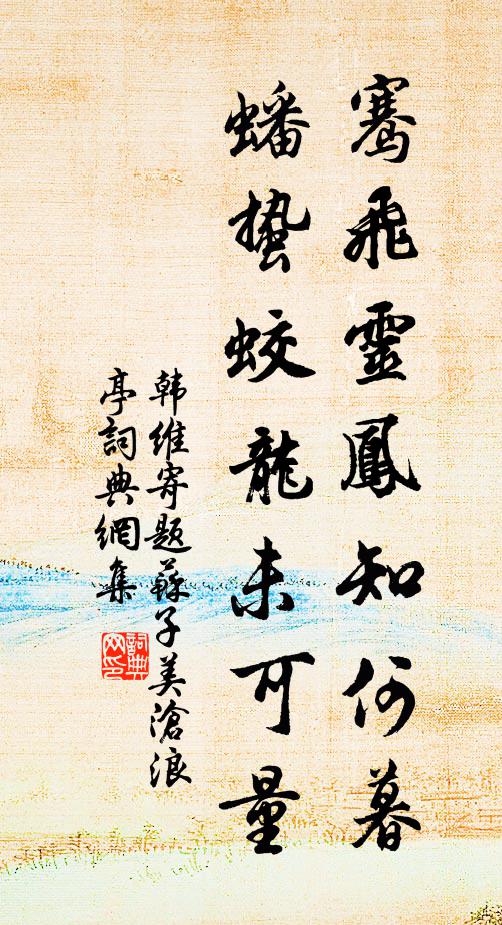 騫飛靈鳳知何暮
蟠蟄蛟龍未可量
韩維寄题蘇子美滄浪
亭詞典網集
詞典
网印